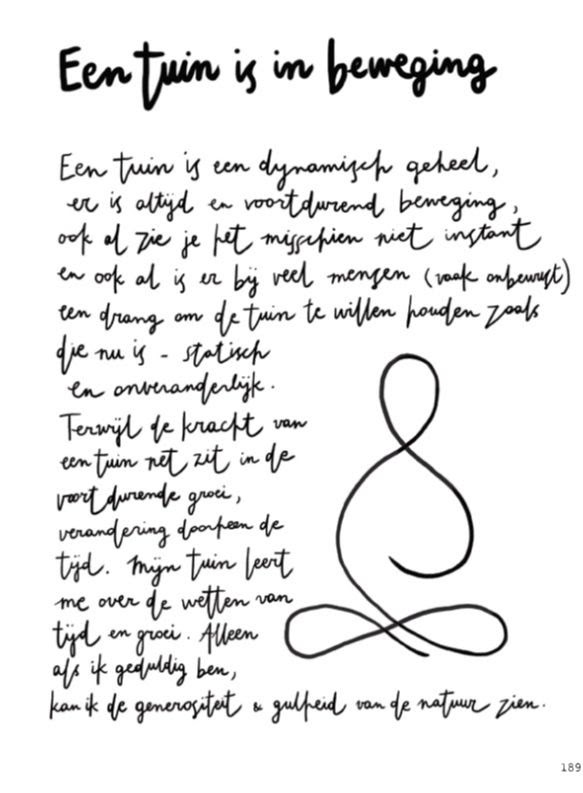 Een tuin is in beweging
Een tuin is een dynamisch geheel,
er is altijd en voortdurend beweging,
ook al zie je het misschien niet instant
en ook al is er bij veel mensen (vaak onbewust)
een drang om de tuin te willen houden zoals
die nu is - statisch
en onveranderlijk.
Terwijl de kracht van
een tuin net zit in de
voortdurende groei,
verandering doorheen de
tijd. Mijn tuin leert
me over de wetten van
tijd en groei. Alleen
als ik geduldig ben,
kan ik de generositeit & gulheid van de natuur zien.
189